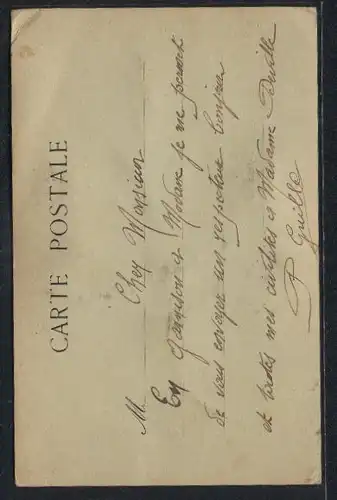 CARTE POSTALE
M. Chez Monsieur
En garnison et Madame je me permet
de vous envoyer un respectueux bonjour
et toutes mes civilités et Madame
P Guille